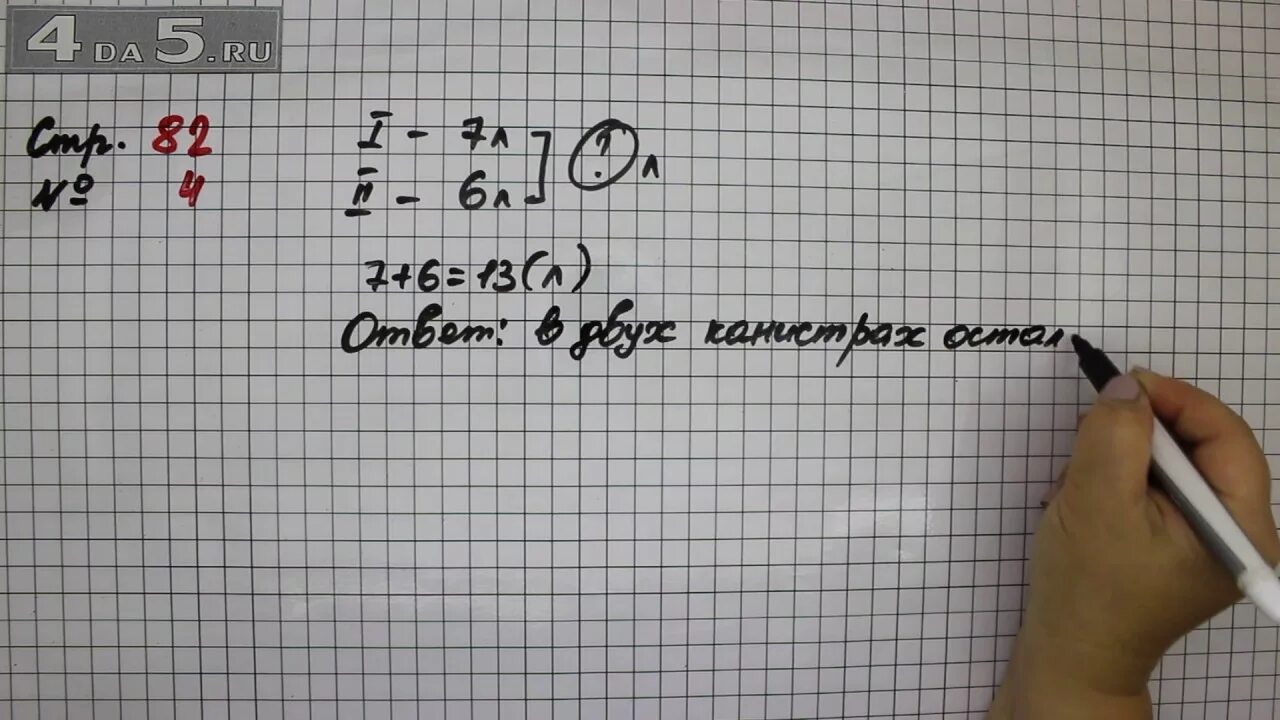 4DA5.RU
Стр. 82
№ 4
I - 7л
II - 6л
? л
7+6=13(л)
Ответ: в двух канистрах остал